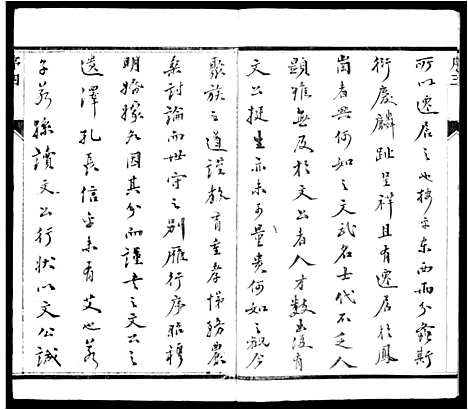 序三
所以遷居之也按公東西兩分螽斯
衍慶麟趾呈祥且有遷居於鳳
崗者與何如之文武名士代不乏人
顯雅無及於文公者人才數出後有
文公挺生亦未可量矣何如之祝今
聚族之道謹教育重孝悌務農
桑討論而世守之別雁行序昭穆
明婚嫁知因其分而謹言之文公之
遺澤孔長信乎未有艾也若
子若孫讀文公行狀以文公誠
序四